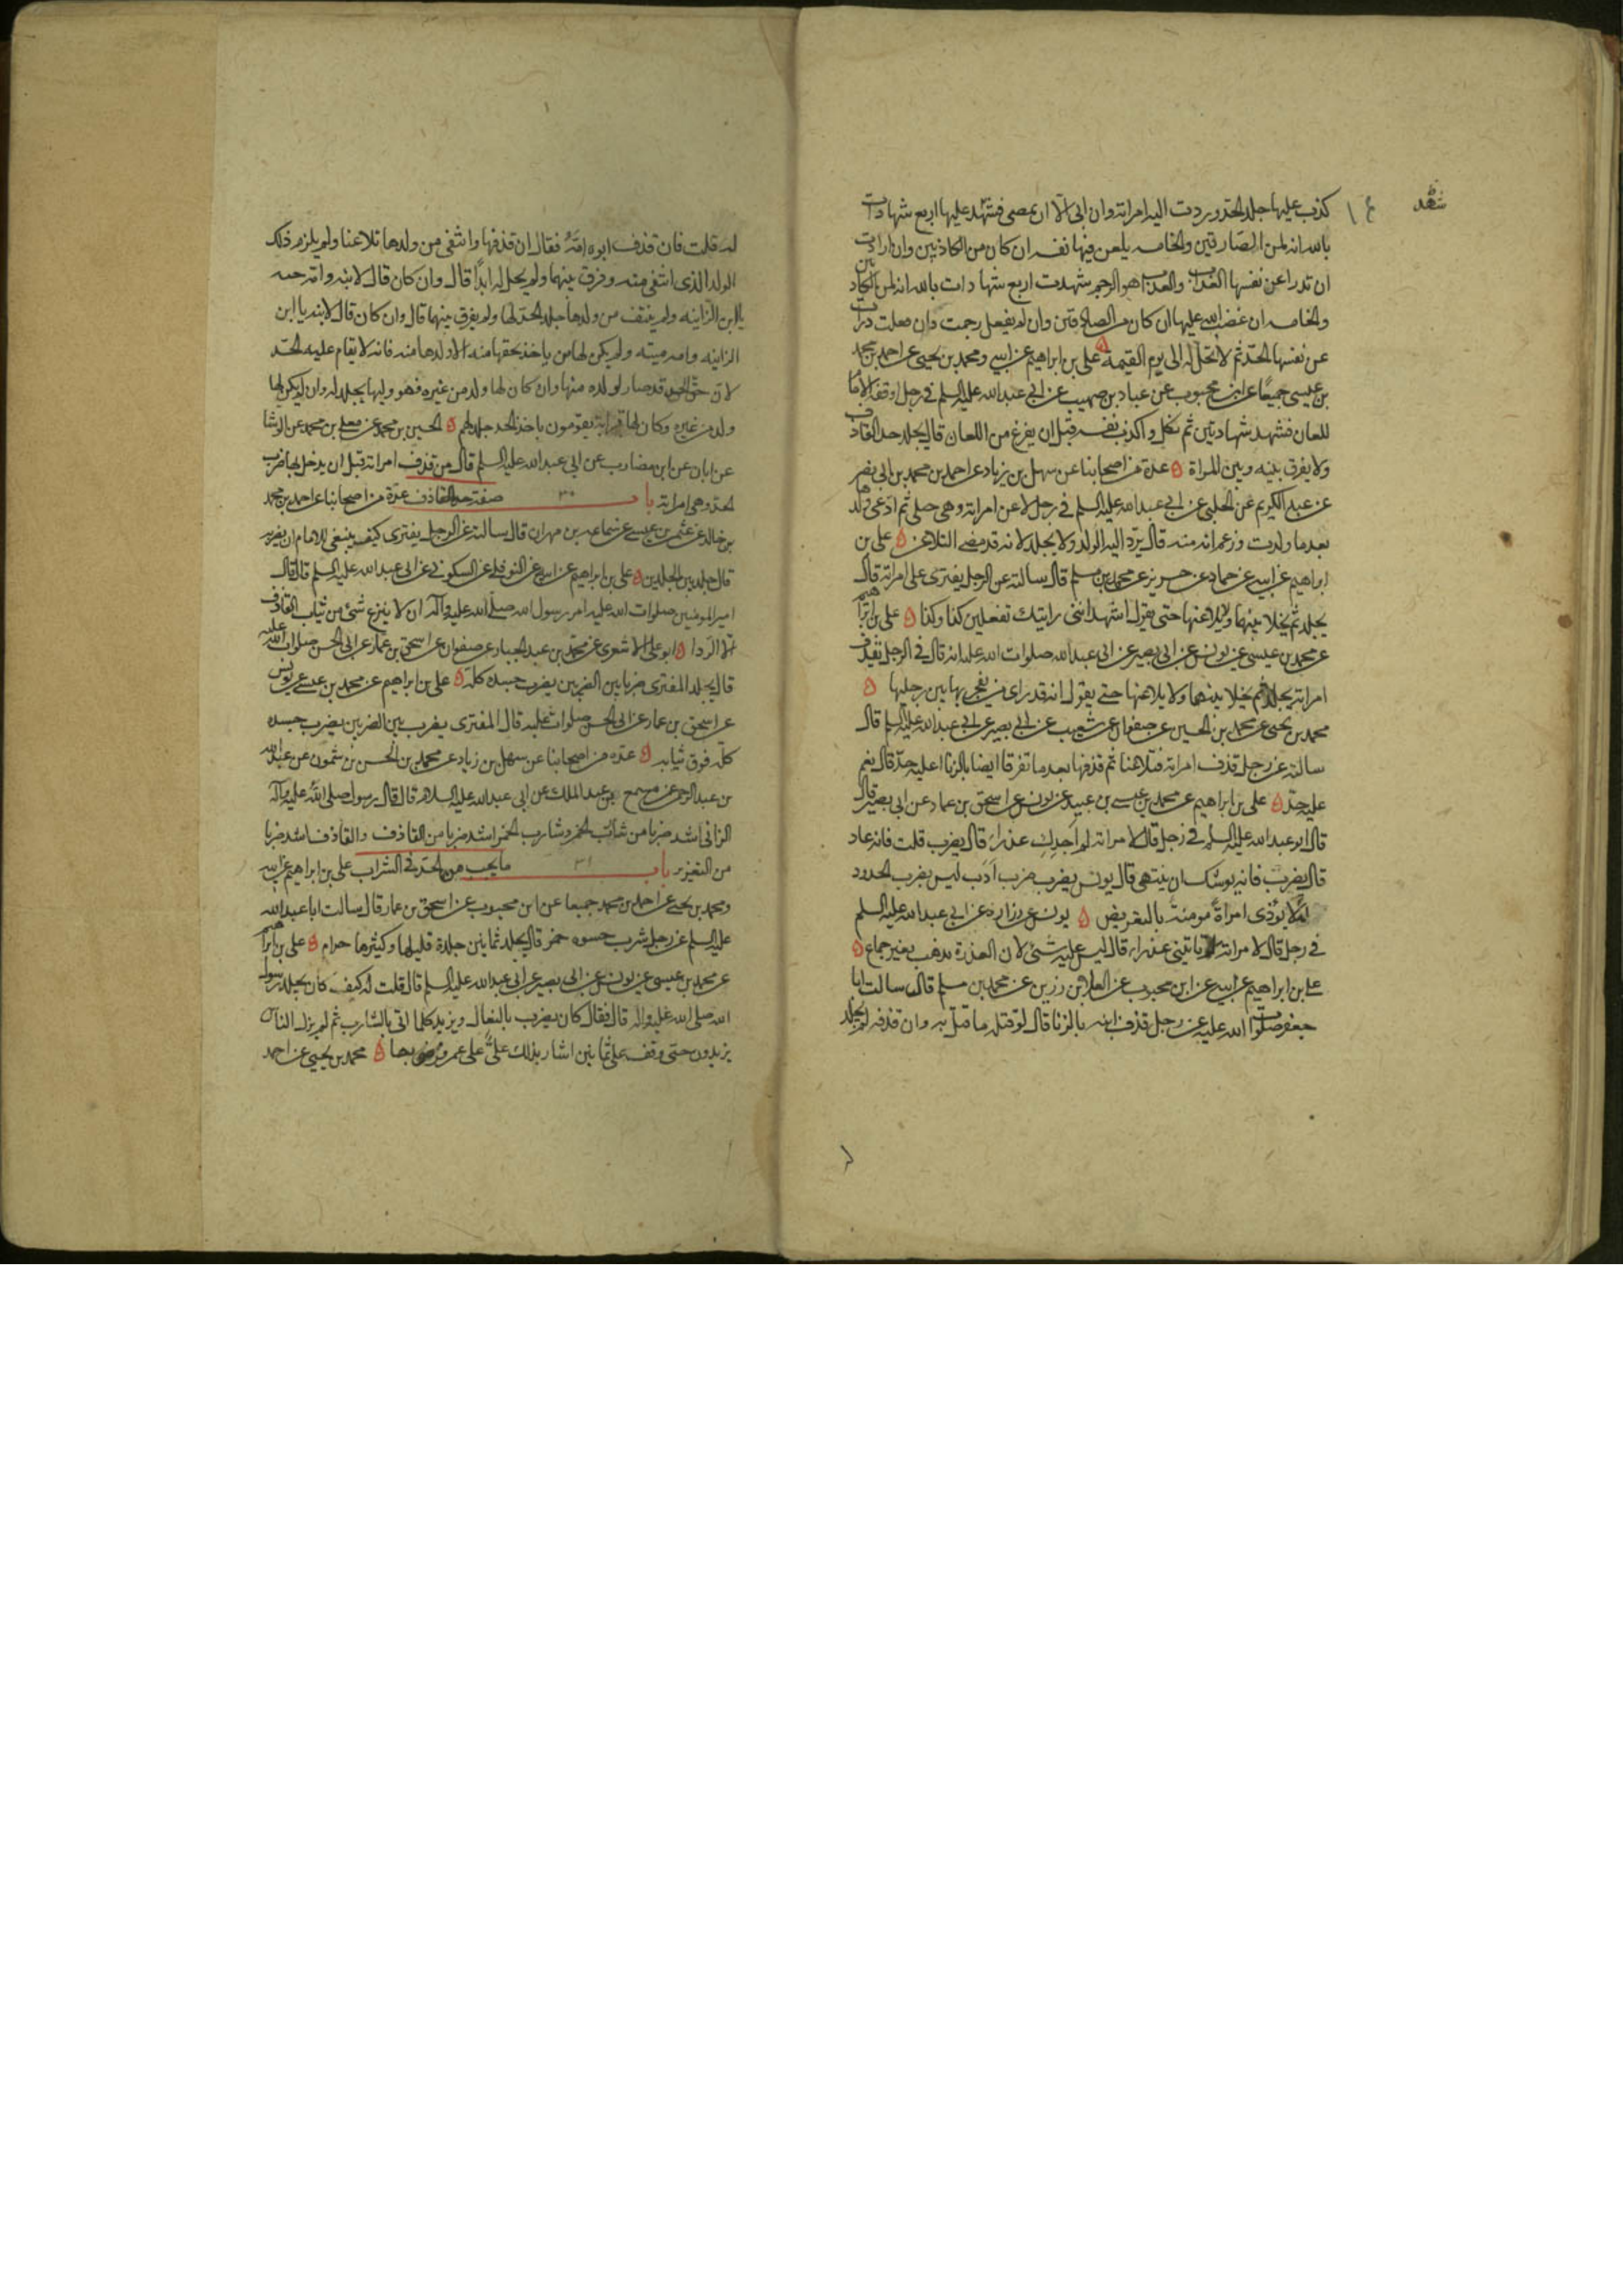 كذب عليها جلد الحد وردت اليه امراته وان ابى الا ان يمضى فشهد عليها اربع شهادات
بالله انه لمن الصادقين والخامسه يلعن فيها نفسه ان كان من الكاذبين وان ارادت
ان تدرا عن نفسها العذاب والعذاب هو الرجم شهدت اربع شهادات بالله انه لمن الكاذبين
والخامسه ان غضب الله عليها ان كان من الصادقين وان لم يفعل رجمت وان فعلت درات
عن نفسها الحد ثم لا تحل له الى يوم القيمة علي بن ابراهيم عن ابيه ومحمد بن يحيى عن احمد بن محمد
بن عيسى جميعا عن ابن محبوب عن عباد بن صهيب عن ابي عبد الله عليه السلم في رجل اوقفه الامام
للعان فشهد شهادتين ثم نكل و اكذب نفسه قبل ان يفرغ من اللعان قال يجلد حد القاذف
ولا يفرق بينه وبين المراة عدة من اصحابنا عن سهل بن زياد عن احمد بن محمد بن ابي نصر
عن عبد الكريم عن الحلبي عن ابي عبد الله عليه السلم في رجل لاعن امراته وهي حبلى ثم ادعى ولدها
بعد ما ولدت وزعم انه منه قال يرد اليه الولد ولا يجلد لانه قد مضى التلاعن علي بن
ابراهيم عن ابيه عن حماد عن حريز عن محمد بن مسلم قال سالته عن الرجل يفترى على امراته قال
يجلد ثم يخلا بينهما ولا يلاعنها حتى يقول اشهد انني رايتك تفعلين كذا وكذا علي بن ابراهيم
عن محمد بن عيسى عن يونس عن ابي بصير عن ابي عبد الله صلوات الله عليه انه قال في الرجل يقذف
امراته يجلد ثم يخلا بينهما ولا يلاعنها حتى يقول انه قد راى من يفجر بها بين رجليها
محمد بن يحيى عن محمد بن الحسين عن صفوان عن شعيب عن ابي بصير عن ابي عبد الله عليه السلم قال
سالته عن رجل قذف امراته فتلاعنا ثم قذفها بعد ما تفرقا ايضا بالزنا اعليه حد قال نعم
عليه حد علي بن ابراهيم عن محمد بن عيسى بن عبيد عن يونس عن اسحق بن عمار عن ابي بصير قال
قال ابو عبد الله عليه السلم في رجل قال لامراته لم اجدك عذراء قال يضرب قلت فانه عاد
قال يضرب فانه يوشك ان ينتهى قال يونس يضرب ضرب ادب ليس يضرب الحدود
لئلا يؤذى امراة مومنة بالتعريض يونس عن زرارة عن ابي عبد الله عليه السلم
في رجل قال لامراته لم تاتيني عذراء قال ليس عليه شئ لان العذرة تذهب بغير جماع
علي بن ابراهيم عن ابيه عن ابن محبوب عن العلا بن رزين عن محمد بن مسلم قال سالت ابا
جعفر صلوات الله عليه عن رجل قذف ابنه بالزنا قال لو قتله ما قتل به وان قذفه لم يجلد
له قلت فان قذف ابوه امه فقال ان قذفها وانتفى من ولدها تلاعنا ولم يلزم ذلك
الولد الذى انتفى منه وفرق بينهما ولم يحل له ابدا قال وان كان قال لابنه وامه حيه
يا ابن الزانيه ولم ينتف من ولدها جلد الحد لها ولم يفرق بينهما قال وان كان قال لابنه يا ابن
الزانيه وامه ميته ولم يكن لها من ياخذ بحقها منه الا ولدها منه فانه لا يقام عليه الحد
لان حق الحد قد صار لولده منها وان كان لها ولد من غيره فهو وليها يجلد له وان لم يكن لها
ولد من غيره وكان لها قرابة يقومون باخذ الحد جلد لهم الحسين بن محمد عن معلى بن محمد عن الوشا
عن ابان عن ابن مضارب عن ابي عبد الله عليه السلم قال من قذف امراته قبل ان يدخل بها ضرب
الحد وهي امراته باب ٣٠ صفة حد القاذف عدة من اصحابنا عن احمد بن محمد
بن خالد عن عثمن بن عيسى عن سماعه بن مهران قال سالته عن الرجل يفترى كيف ينبغى للامام ان يضربه
قال جلد بين الجلدين علي بن ابراهيم عن ابيه عن النوفلي عن السكوني عن ابي عبد الله عليه السلم قال قال
امير المومنين صلوات الله عليه امر رسول الله صلى الله عليه وآله ان لا ينزع شئ من ثياب القاذف
الا الردا ابو علي الاشعرى عن محمد بن عبد الجبار عن صفوان عن اسحق بن عمار عن ابي الحسن صلوات الله عليه
قال يجلد المفترى ضربا بين الضربين يضرب جسده كله علي بن ابراهيم عن محمد بن عيسى عن يونس
عن اسحق بن عمار عن ابي الحسن صلوات عليه قال المفترى يضرب بين الضربين يضرب جسده
كله فوق ثيابه عده من اصحابنا عن سهل بن زياد عن محمد بن الحسن بن شمون عن عبد الله
بن عبد الرحمن عن مسمع بن عبد الملك عن ابي عبد الله عليه السلام قال قال رسول صلى الله عليه وآله
الزانى اشد ضربا من شارب الخمر وشارب الخمر اشد ضربا من القاذف والقاذف اشد ضربا
من التعزير باب ٣١ ما يجب من الحد في الشراب علي بن ابراهيم عن ابيه
ومحمد بن يحيى عن احمد بن محمد جميعا عن ابن محبوب عن اسحق بن عمار قال سالت ابا عبد الله
عليه السلم عن رجل شرب حسوه خمر قال يجلد ثمانين جلدة قليلها وكثيرها حرام علي بن ابراهيم
عن محمد بن عيسى عن يونس عن ابي بصير عن ابي عبد الله عليه السلم قال قلت له كيف كان يجلد رسول
الله صلى الله عليه واله قال فقال كان يضرب بالنعال ويزيد كلما اتى بالشارب ثم لم يزل الناس
يزيدون حتى وقف على ثمانين اشار بذلك علي على عمر فرضى بها محمد بن يحيى عن احمد